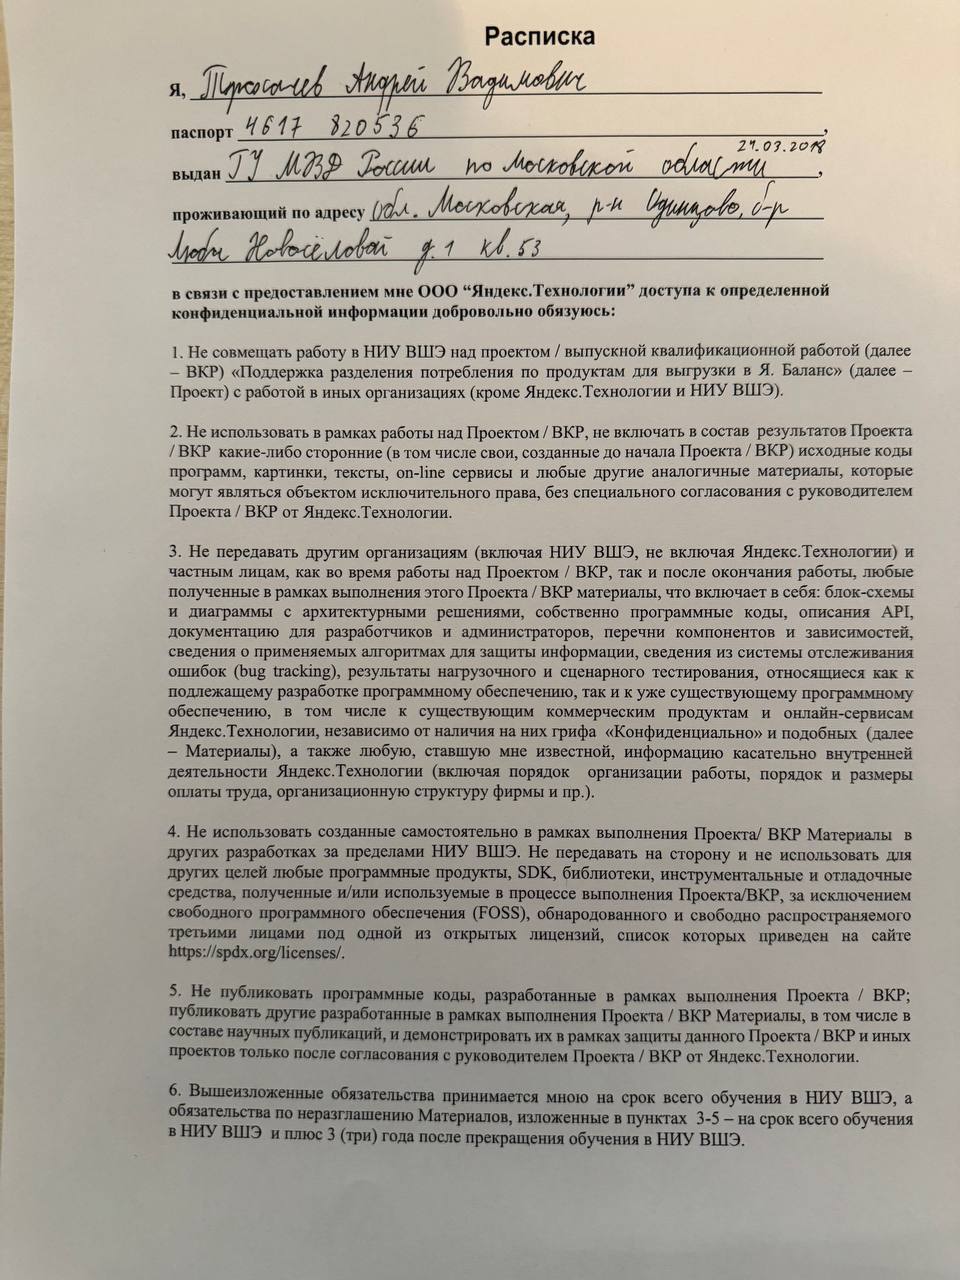 Расписка
Я, Андрей Вадимович
паспорт 4617 820536,
21.03.2018
выдан ГУ МВД России по Московской области,
проживающий по адресу Обл. Московская, р-н Одинцово, б-р
Любы Новосёловой д.1 кв.53
в связи с предоставлением мне ООО “Яндекс.Технологии” доступа к определенной
конфиденциальной информации добровольно обязуюсь:
1. Не совмещать работу в НИУ ВШЭ над проектом / выпускной квалификационной работой (далее
– ВКР) «Поддержка разделения потребления по продуктам для выгрузки в Я. Баланс» (далее –
Проект) с работой в иных организациях (кроме Яндекс.Технологии и НИУ ВШЭ).
2. Не использовать в рамках работы над Проектом / ВКР, не включать в состав результатов Проекта
/ ВКР какие-либо сторонние (в том числе свои, созданные до начала Проекта / ВКР) исходные коды
программ, картинки, тексты, on-line сервисы и любые другие аналогичные материалы, которые
могут являться объектом исключительного права, без специального согласования с руководителем
Проекта / ВКР от Яндекс.Технологии.
3. Не передавать другим организациям (включая НИУ ВШЭ, не включая Яндекс.Технологии) и
частным лицам, как во время работы над Проектом / ВКР, так и после окончания работы, любые
полученные в рамках выполнения этого Проекта / ВКР материалы, что включает в себя: блок-схемы
и диаграммы с архитектурными решениями, собственно программные коды, описания API,
документацию для разработчиков и администраторов, перечни компонентов и зависимостей,
сведения о применяемых алгоритмах для защиты информации, сведения из системы отслеживания
ошибок (bug tracking), результаты нагрузочного и сценарного тестирования, относящиеся как к
подлежащему разработке программному обеспечению, так и к уже существующему программному
обеспечению, в том числе к существующим коммерческим продуктам и онлайн-сервисам
Яндекс.Технологии, независимо от наличия на них грифа «Конфиденциально» и подобных (далее
– Материалы), а также любую, ставшую мне известной, информацию касательно внутренней
деятельности Яндекс.Технологии (включая порядок организации работы, порядок и размеры
оплаты труда, организационную структуру фирмы и пр.).
4. Не использовать созданные самостоятельно в рамках выполнения Проекта/ ВКР Материалы в
других разработках за пределами НИУ ВШЭ. Не передавать на сторону и не использовать для
других целей любые программные продукты, SDK, библиотеки, инструментальные и отладочные
средства, полученные и/или используемые в процессе выполнения Проекта/ВКР, за исключением
свободного программного обеспечения (FOSS), обнародованного и свободно распространяемого
третьими лицами под одной из открытых лицензий, список которых приведен на сайте
https://spdx.org/licenses/.
5. Не публиковать программные коды, разработанные в рамках выполнения Проекта / ВКР;
публиковать другие разработанные в рамках выполнения Проекта / ВКР Материалы, в том числе в
составе научных публикаций, и демонстрировать их в рамках защиты данного Проекта / ВКР и иных
проектов только после согласования с руководителем Проекта / ВКР от Яндекс.Технологии.
6. Вышеизложенные обязательства принимается мною на срок всего обучения в НИУ ВШЭ, а
обязательства по неразглашению Материалов, изложенные в пунктах 3-5 – на срок всего обучения
в НИУ ВШЭ и плюс 3 (три) года после прекращения обучения в НИУ ВШЭ.